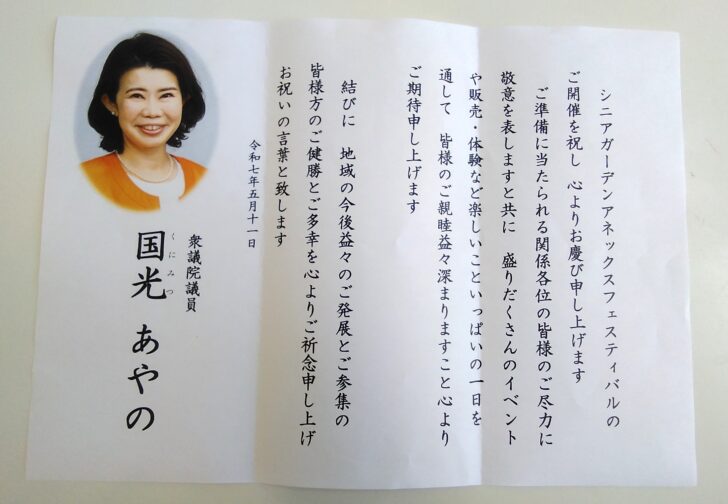 シニアガーデンアネックスフェスティバルの
ご開催を祝し 心よりお慶び申し上げます
ご準備に当たられる関係各位の皆様のご尽力に
敬意を表しますと共に 盛りだくさんのイベント
や販売・体験など楽しいこといっぱいの一日を
通して 皆様のご親睦益々深まりますこと心より
ご期待申し上げます
結びに 地域の今後益々のご発展とご参集の
皆様方のご健勝とご多幸を心よりご祈念申し上げ
お祝いの言葉と致します
令和七年五月十一日
衆議院議員
国光 あやの
くにみつ